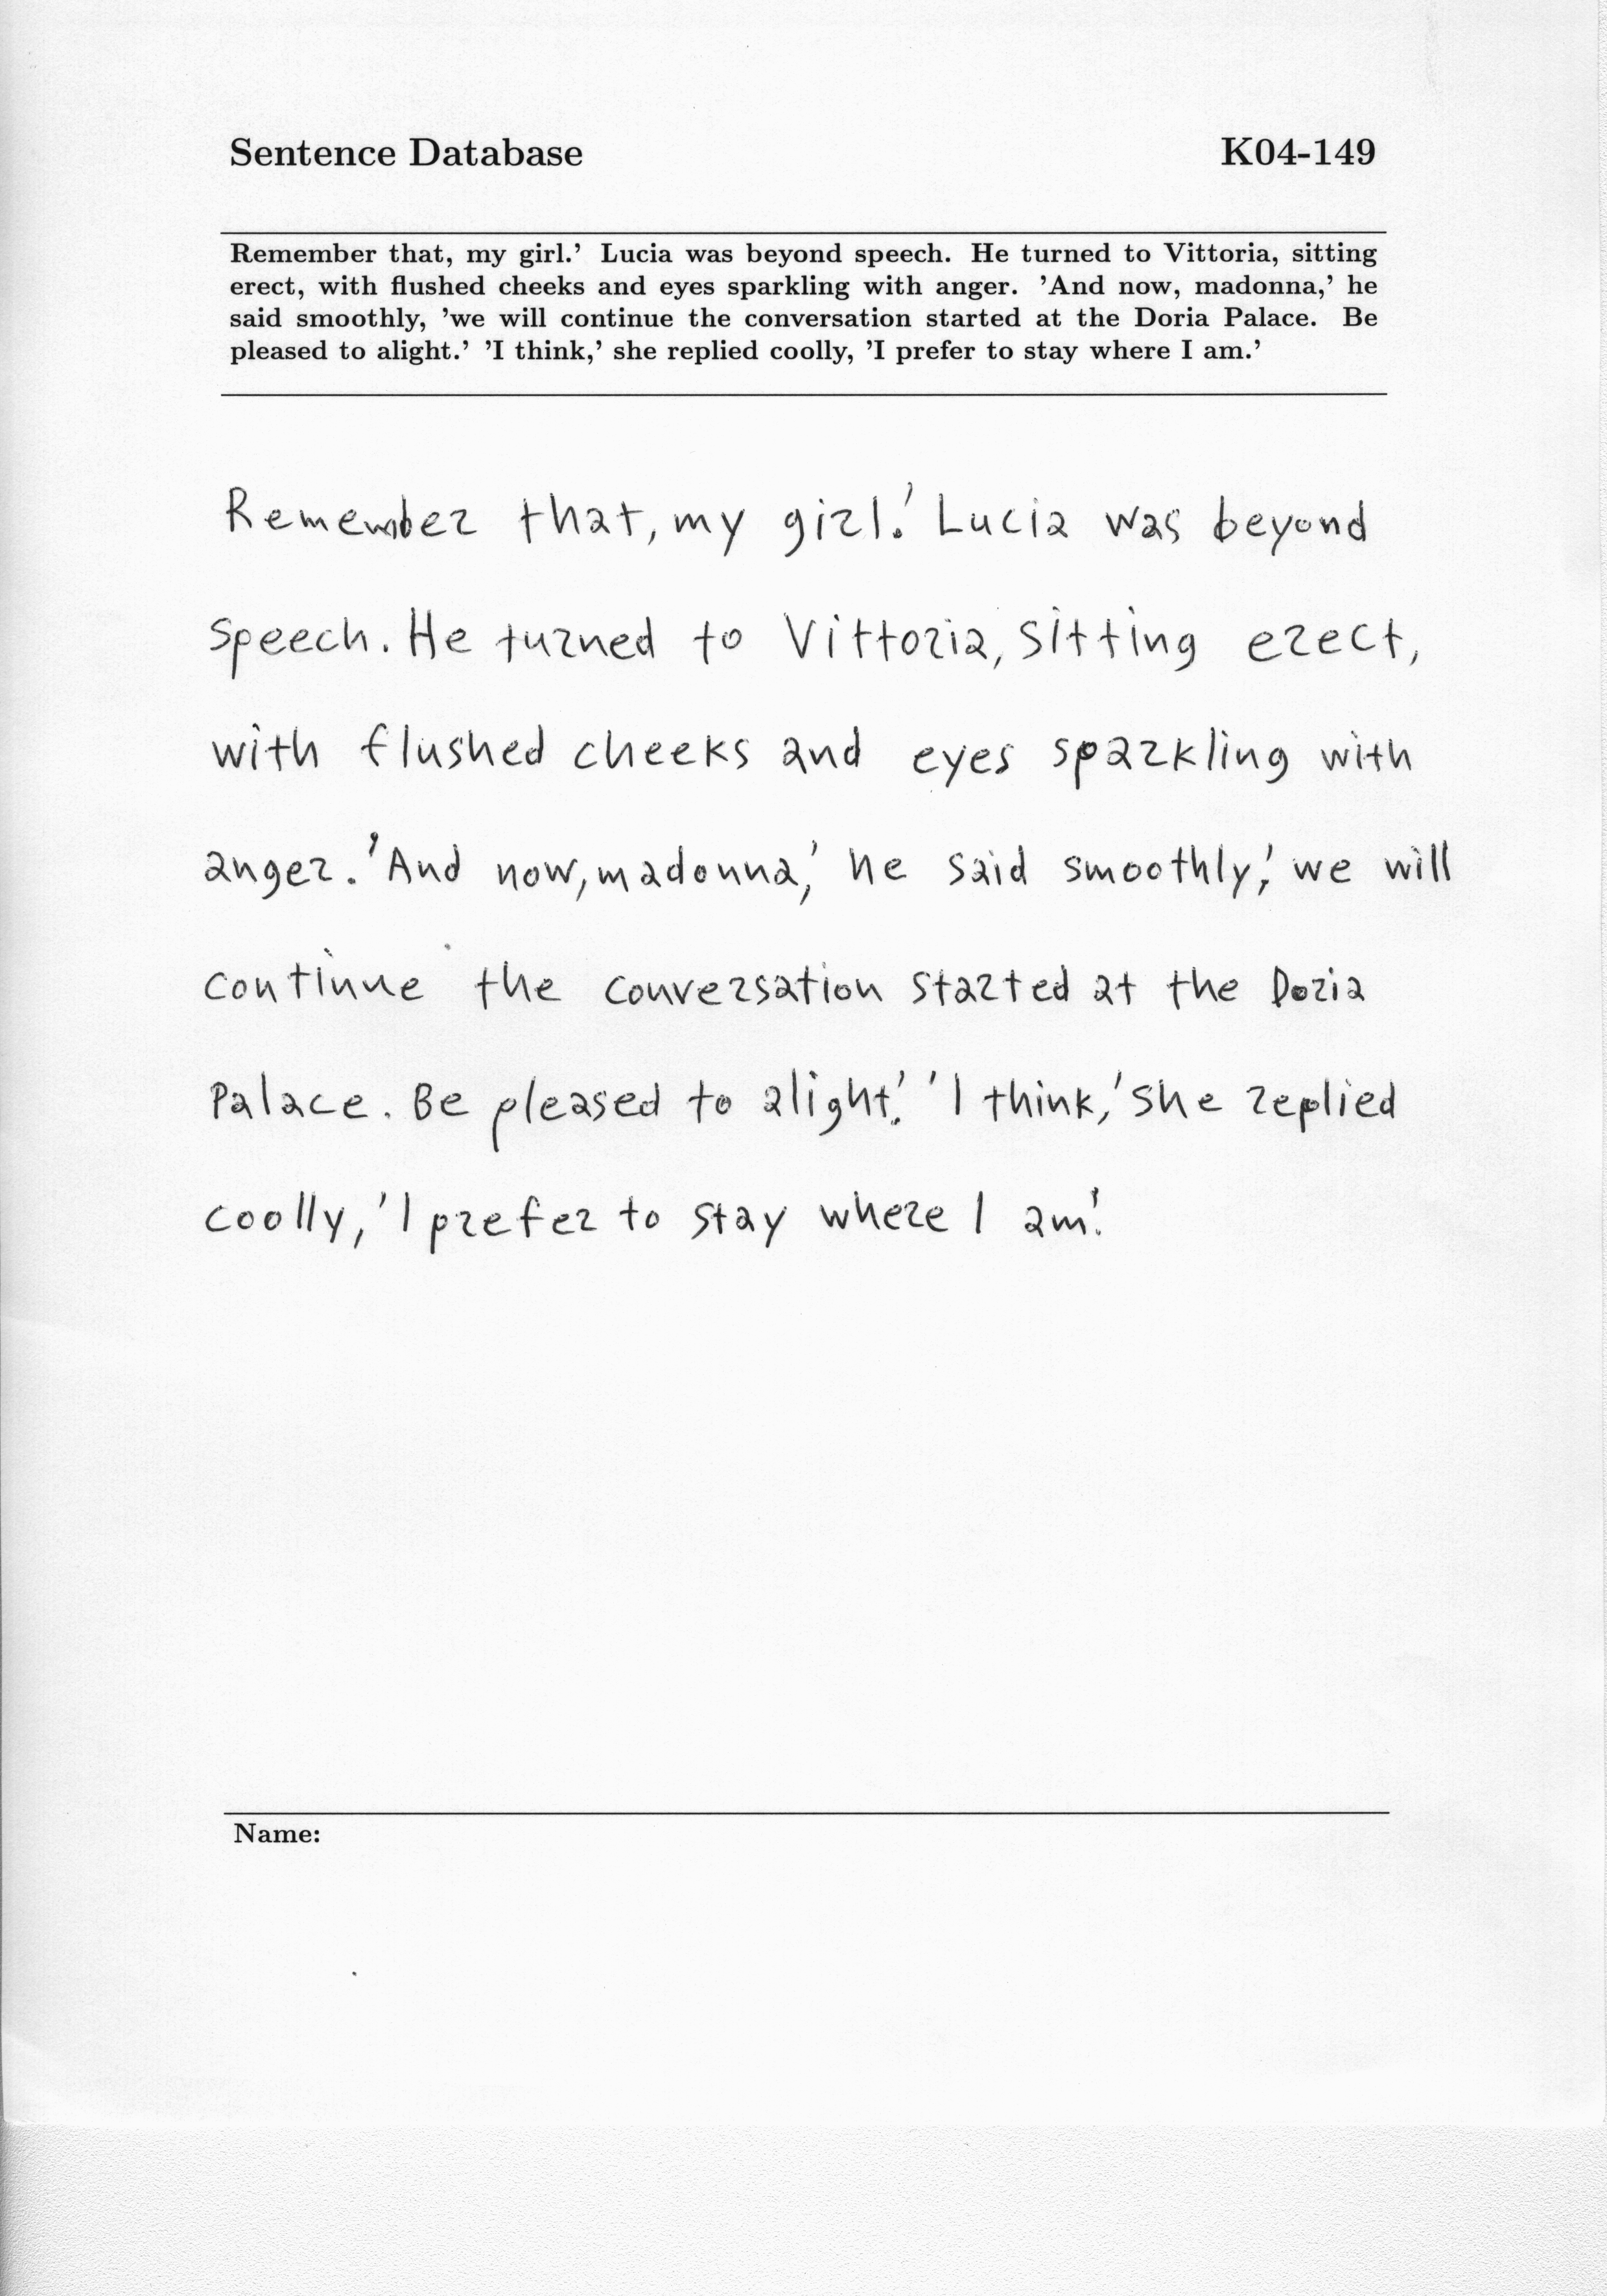 Sentence Database K04-149
Remember that, my girl.’ Lucia was beyond speech. He turned to Vittoria, sitting
erect, with flushed cheeks and eyes sparkling with anger. ’And now, madonna,’ he
said smoothly, ’we will continue the conversation started at the Doria Palace. Be
pleased to alight.’ ’I think,’ she replied coolly, ’I prefer to stay where I am.’
Remember that, my girl.' Lucia was beyond
speech. He turned to Vittoria, sitting erect,
with flushed cheeks and eyes sparkling with
anger. 'And now, madonna,' he said smoothly,' we will
continue the conversation started at the Doria
Palace. Be pleased to alight.' 'I think,' she replied
coolly, 'I prefer to stay where I am.'
Name: